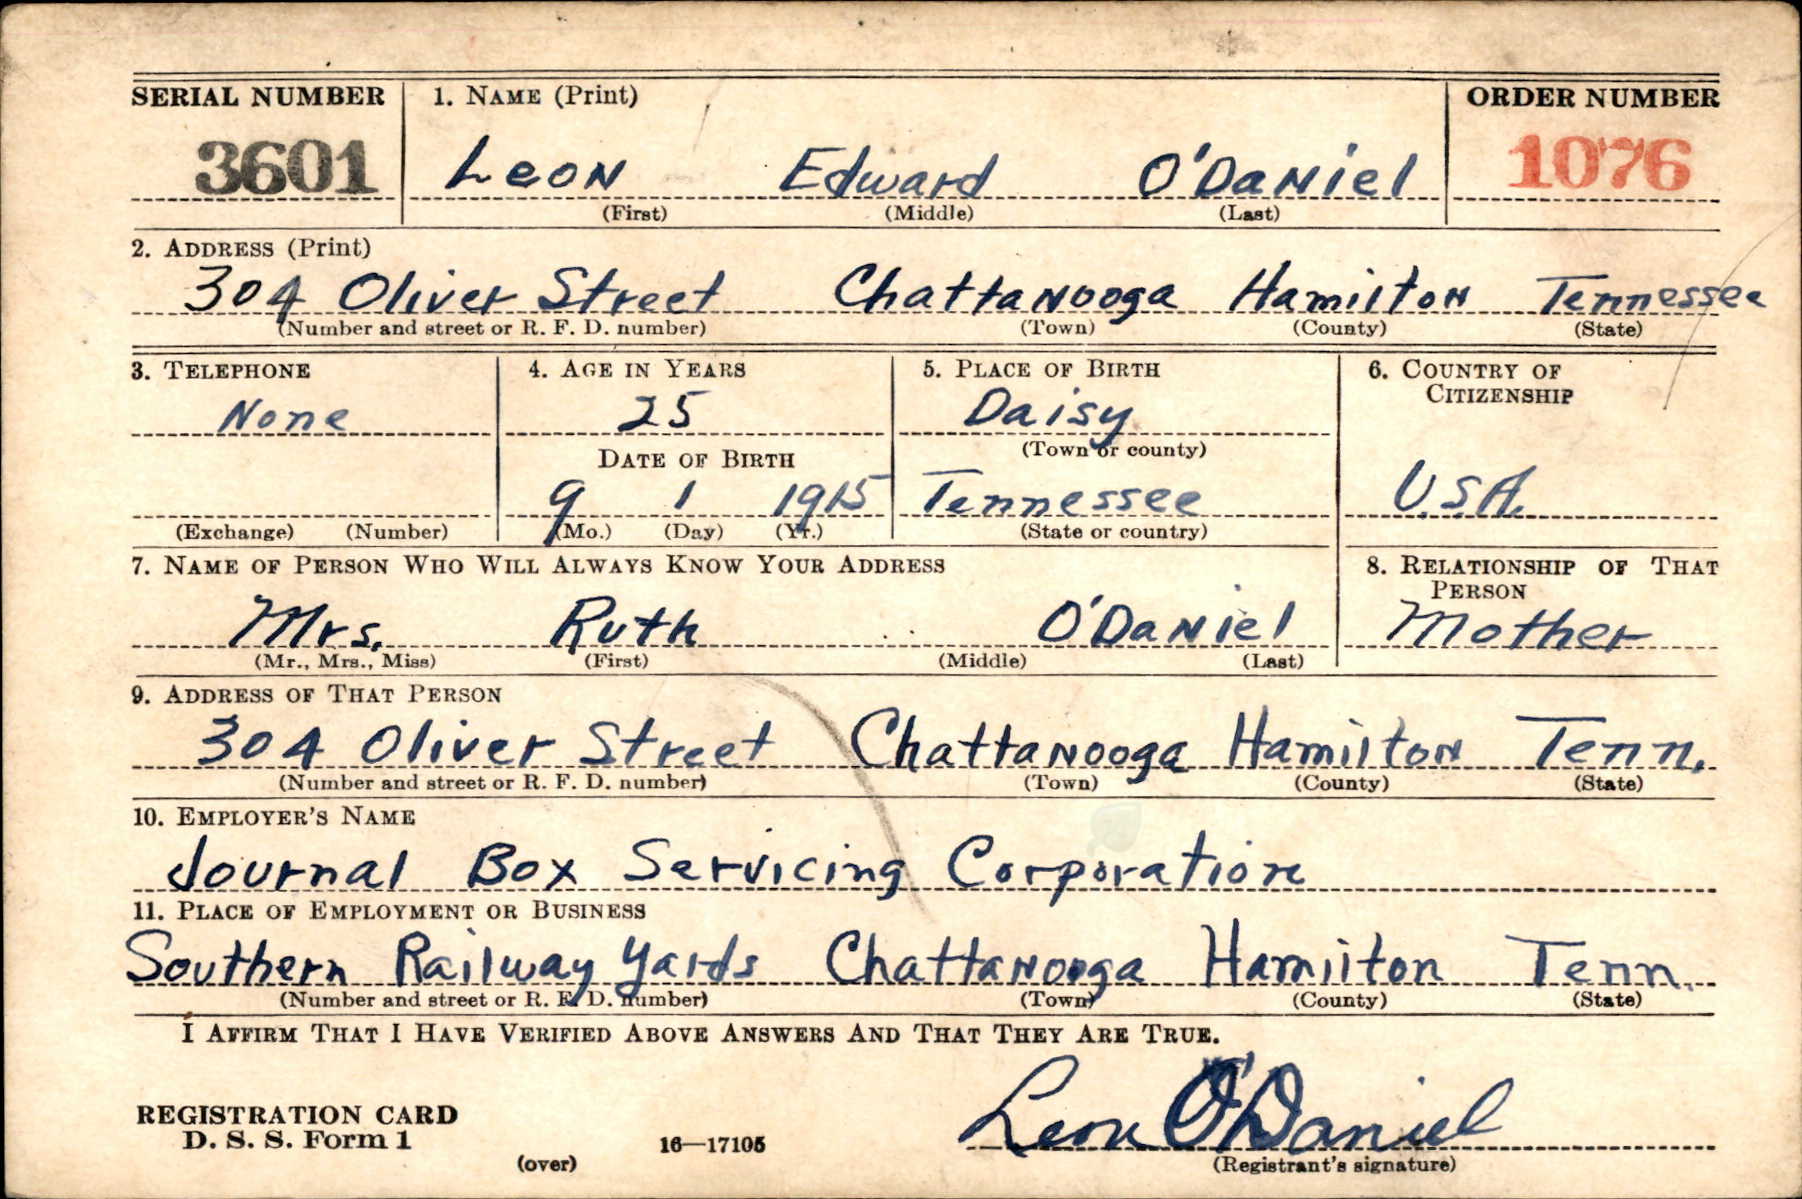 SERIAL NUMBER 1. NAME (Print) ORDER NUMBER
3601 Leon Edward O'Daniel 1076
(First) (Middle) (Last)
2. ADDRESS (Print)
304 Oliver Street Chattanooga Hamilton Tennessee
(Number and street or R. F. D. number) (Town) (County) (State)
3. TELEPHONE 4. AGE IN YEARS 5. PLACE OF BIRTH 6. COUNTRY OF CITIZENSHIP
None 25 Daisy
(Town or county)
DATE OF BIRTH
9 1 1915 Tennessee U.S.A.
(Exchange) (Number) (Mo.) (Day) (Yr.) (State or country)
7. NAME OF PERSON WHO WILL ALWAYS KNOW YOUR ADDRESS 8. RELATIONSHIP OF THAT PERSON
Mrs. Ruth O'Daniel Mother
(Mr., Mrs., Miss) (First) (Middle) (Last)
9. ADDRESS OF THAT PERSON
304 Oliver Street Chattanooga Hamilton Tenn.
(Number and street or R. F. D. number) (Town) (County) (State)
10. EMPLOYER'S NAME
Journal Box Servicing Corporation
11. PLACE OF EMPLOYMENT OR BUSINESS
Southern Railway Yards Chattanooga Hamilton Tenn.
(Number and street or R. F. D. number) (Town) (County) (State)
I AFFIRM THAT I HAVE VERIFIED ABOVE ANSWERS AND THAT THEY ARE TRUE.
REGISTRATION CARD
D. S. S. Form 1 16—17105 Leon O'Daniel
(over) (Registrant's signature)